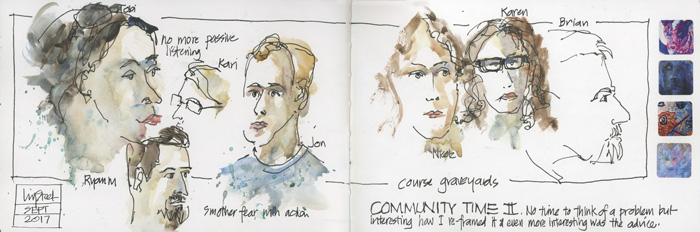 Tobi
no more passive
listening
Kari
Jon
Ryan M
smother fear with action
SEPT
2017
Karen
Brian
Nicole
course graveyards
COMMUNITY TIME II. No time to think of a problem but
interesting how I re-framed it & even more interesting was the advice.